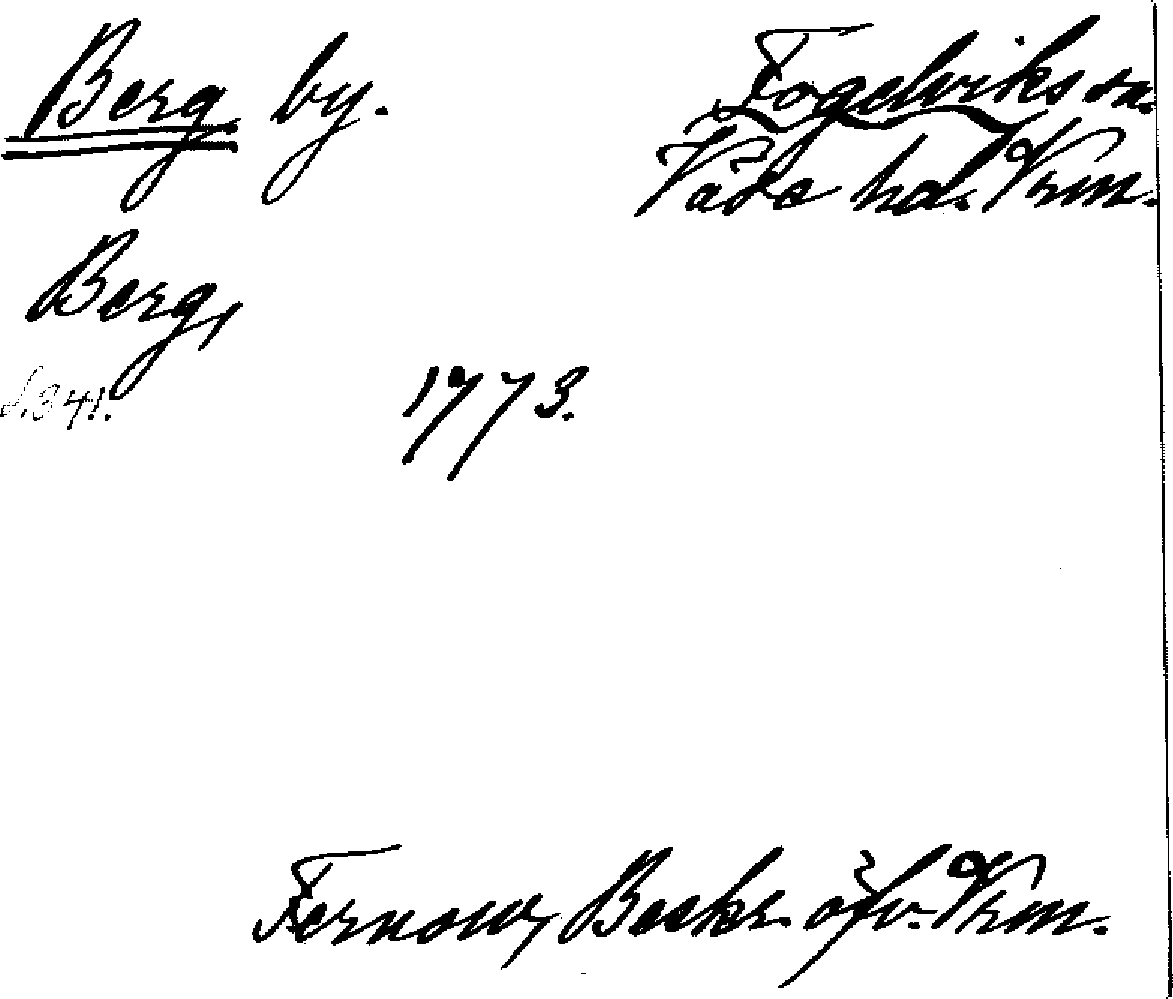 Berg by. Fogelviks sn.
Väse hd. Vrm.
Berg,
s. 341.
1773.
Fernow, Beskr. öfv. Vrm.